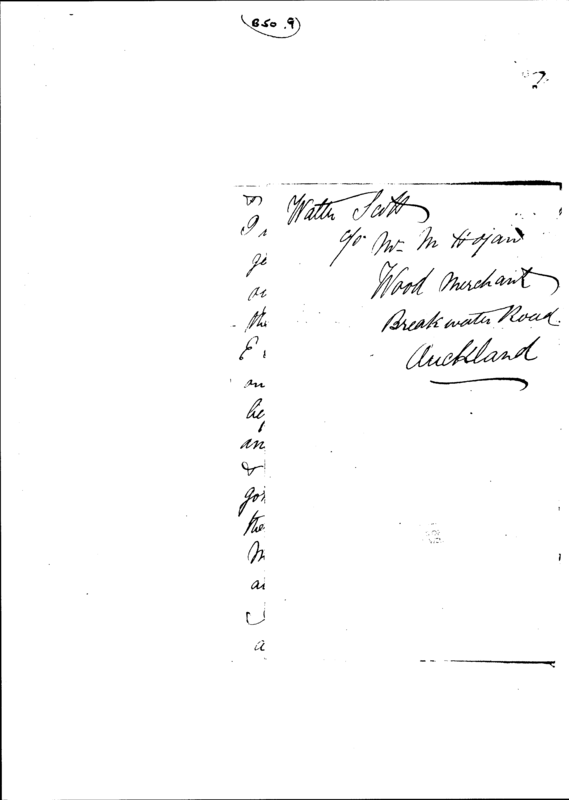 650.9
Walter Scott
c/o Mr M Hogan
Wood Merchant
Breakwater Road.
Auckland
&
I
ge
the
E
on
an
&
the
M
ai
a